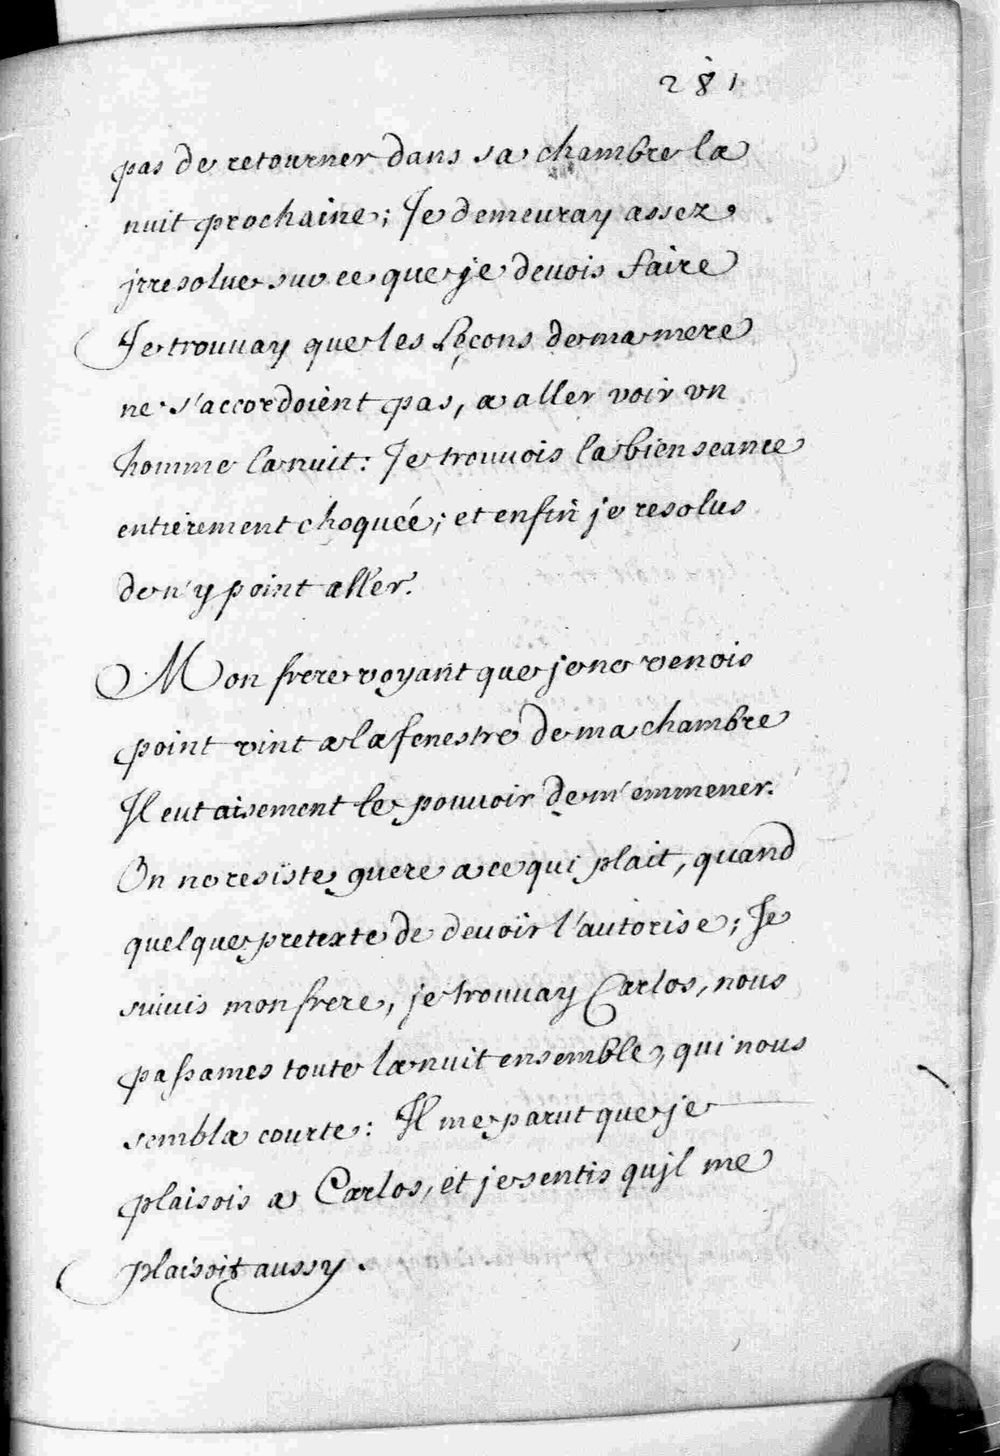 281
pas de retourner dans sa chambre la
nuit prochaine; Je demeuray assez
jrresolue sur ce que je deuois faire
Je trouuay que les Leçons de ma mere
ne s'accordoient pas, a aller voir vn
homme la nuit: Je trouuois la bienseance
entierement choquée; et enfin je resolus
de n'y point aller.
Mon frere voyant que je ne venois
point vint a la fenestre de ma chambre
Il eut aisement le pouuoir de m'emmener.
On ne resiste guere a ce qui plait, quand
quelque pretexte de deuoir l'autorise; Je
suiuis mon frere, je trouuay Carlos, nous
passames toute la nuit ensemble, qui nous
sembla courte: Il me parut que je
plaisois a Carlos, et je sentis qu'jl me
plaisoit aussy.